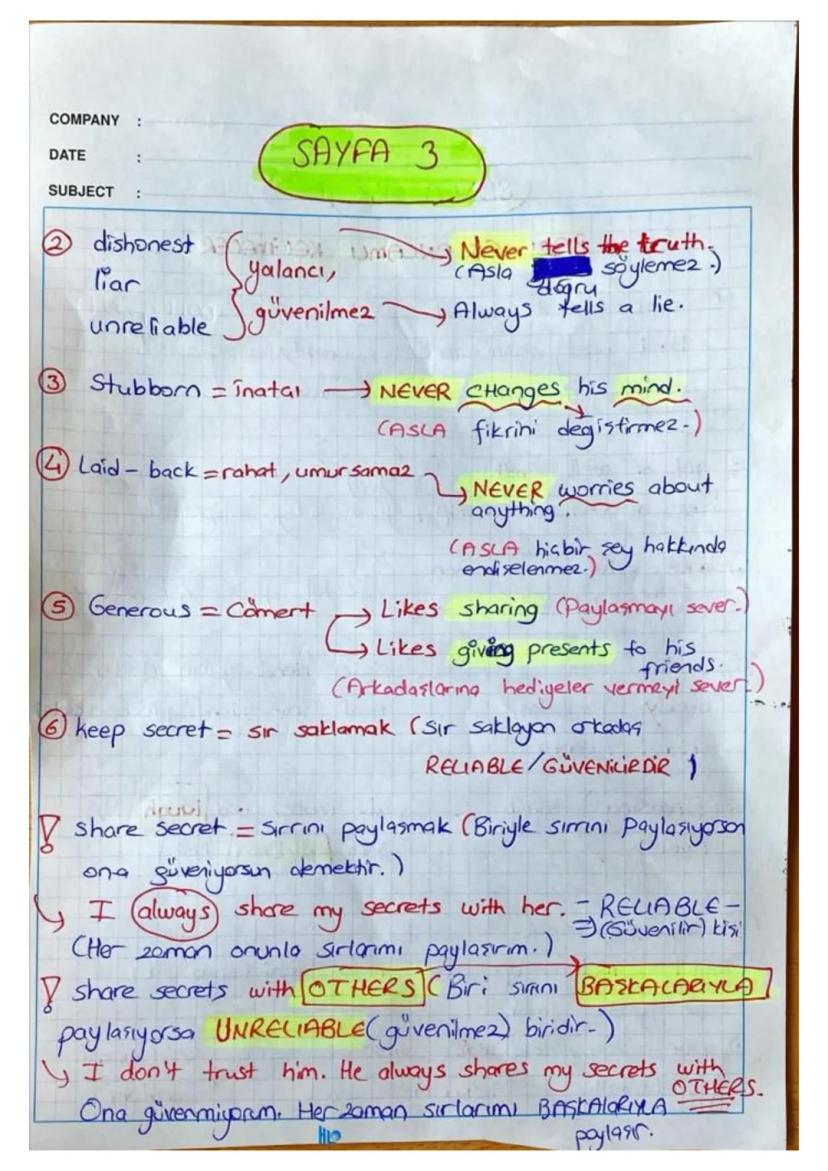 COMPANY :
DATE :
SUBJECT :
SAYFA 3
② dishonest
liar
unreliable
yalancı,
güvenilmez
Never tells the truth.
(Asla doğru söylemez.)
Always tells a lie.
③ Stubborn = inatçı → NEVER CHanges his mind.
(ASLA fikrini değiştirmez.)
④ Laid-back = rahat, umursamaz → NEVER worries about
anything.
(ASLA hiçbir şey hakkında
endişelenmez.)
⑤ Generous = Cömert → Likes sharing (Paylaşmayı sever.)
→ Likes giving presents to his
friends.
(Arkadaşlarına hediyeler vermeyi sever.)
⑥ keep secret = sır saklamak (sır saklayan arkadaş
RELIABLE/GÜVENİLİRDİR)
! share secret = sırrını paylaşmak (Biriyle sırrını Paylaşıyorsan
ona güveniyorsun demektir.)
I always share my secrets with her. - RELIABLE -
(Güvenilir) kişi
(Her zaman onunla sırlarımı paylaşırım.)
! share secrets with OTHERS (Biri sırını BAŞKALARIYLA
paylaşıyorsa UNRELIABLE (güvenilmez) biridir.)
I don't trust him. He always shares my secrets with
OTHERS.
Ona güvenmiyorum. Her zaman sırlarımı BAŞKALARIYLA
paylaşır.